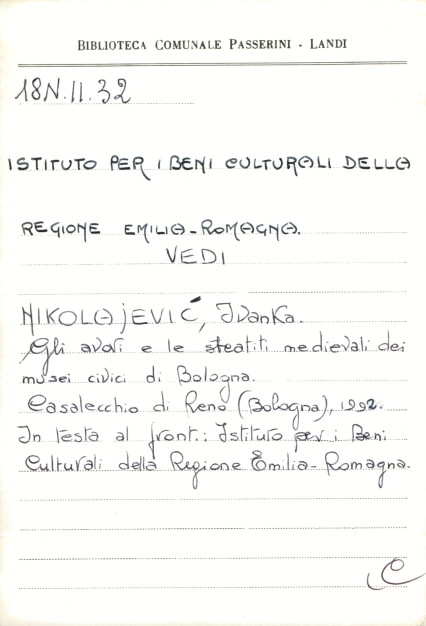 BIBLIOTECA COMUNALE PASSERINI - LANDI
18N.II.32
ISTITUTO PER I BENI CULTURALI DELLA
REGIONE EMILIA-ROMAGNA.
VEDI
NIKOLAJEVIĆ, Ivanka.
Gli avori e le steatiti medievali dei
musei civici di Bologna.
Casalecchio di Reno (Bologna), 1992.
In testa al front.: Istituto per i Beni
Culturali della Regione Emilia-Romagna.
C